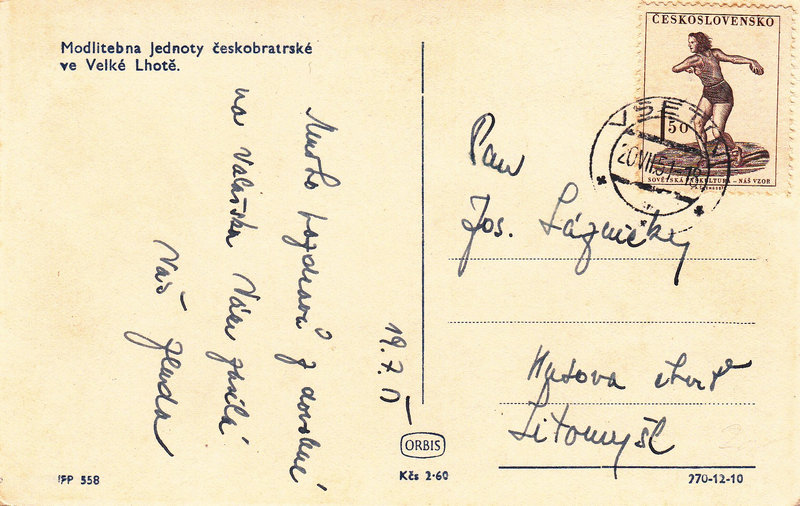 Modlitebna Jednoty českobratrské
ve Velké Lhotě.
Mnoho pozdravů z dovolené
na Valašsku Vám zasílá
Váš Jenda
19.7.
ČESKOSLOVENSKO
1 50
SOVĚTSKÁ FYSKULTURA - NÁŠ VZOR
VSETÍN
20.VII.51-18
Pan
Jos. Lázničky
Husova čtvrť
Litomyšl
ORBIS
Kčs 2·60
IFP 558
270-12-10